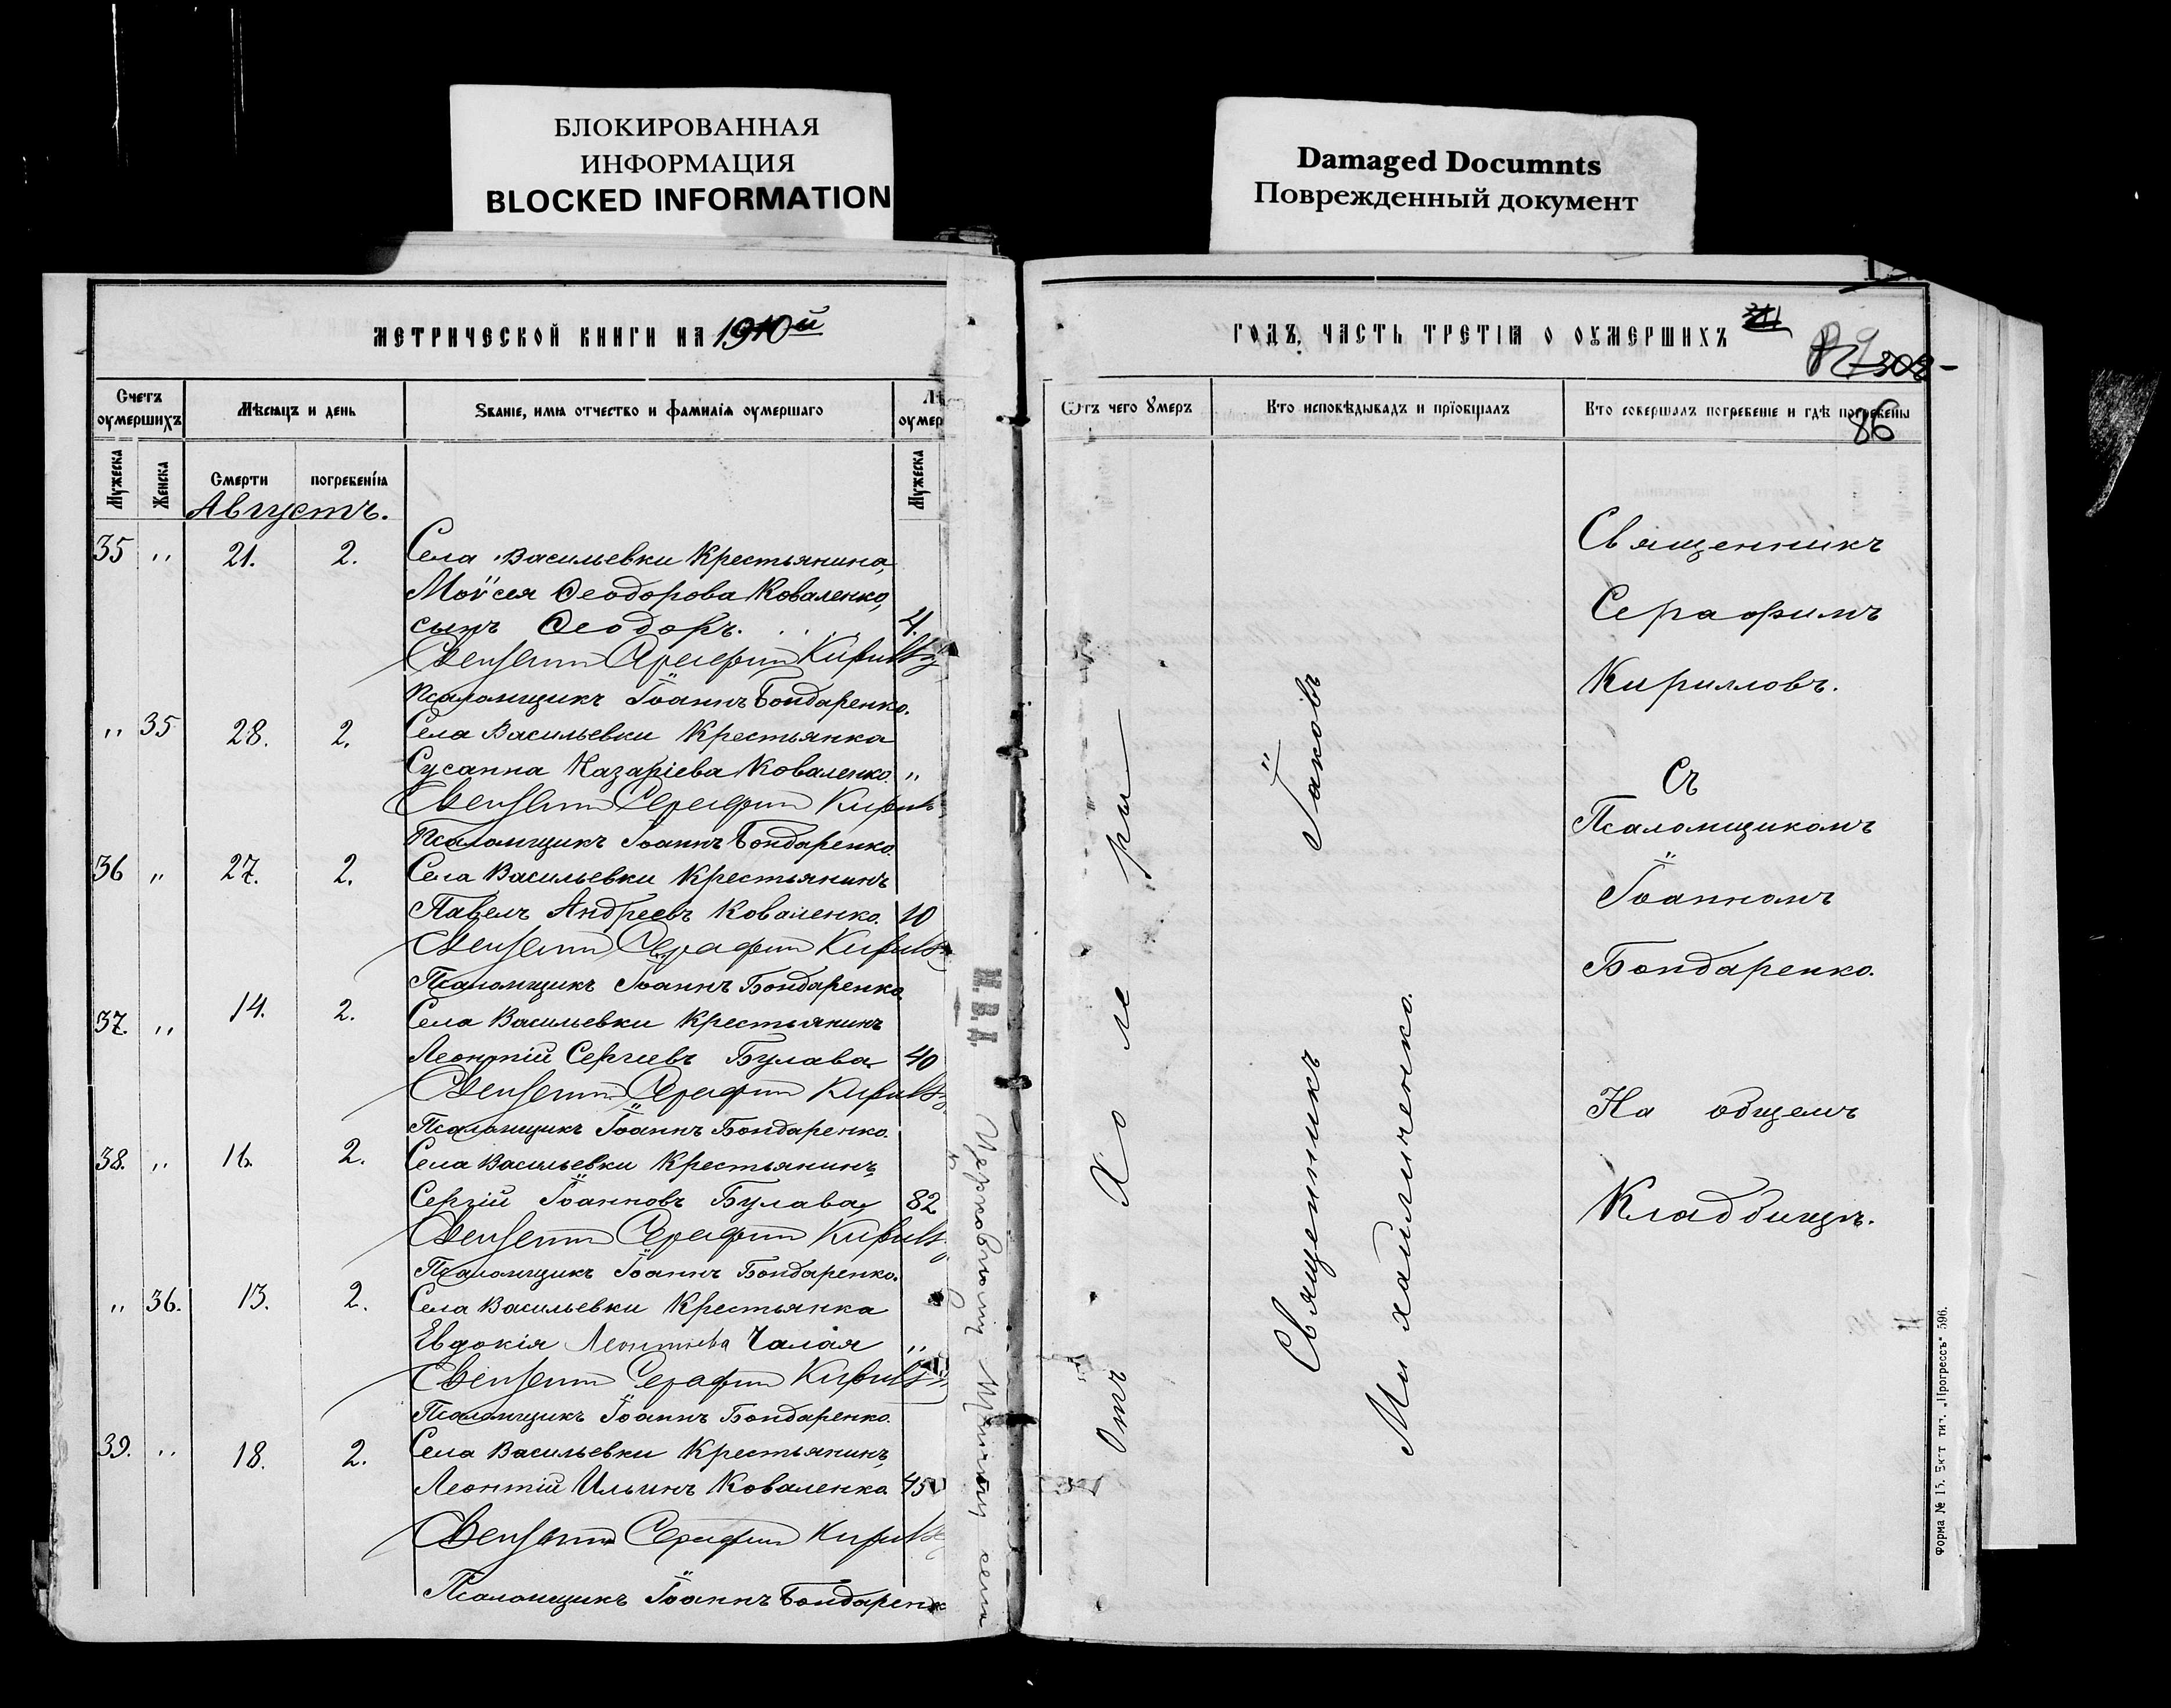 БЛОКИРОВАННАЯ
ИНФОРМАЦИЯ
BLOCKED INFORMATION
Damaged Documnts
Поврежденный документ
МЕТРИЧЕСКОЙ КНИГИ НА 1910й
Счетъ оумершихъ
Мѣсяцъ и день
Званіе, имя отчество и фамилія оумершаго
Мужеска
Женска
Смерти
погребенія
Мужеска
Августъ.
35 " 21. 2. Села Васильевки Крестьянина,
Моѵсея Ѳеодорова Коваленко,
сынъ Ѳеодоръ. 4.
Псаломщикъ Іоаннъ Бондаренко.
" 35 28. 2. Села Васильевки Крестьянка
Сусанна Назаріева Коваленко. "
Псаломщикъ Іоаннъ Бондаренко.
36 " 27. 2. Села Васильевки Крестьянинъ
Павелъ Андреевъ Коваленко. 10
Псаломщикъ Іоаннъ Бондаренко
37. " 14. 2. Села Васильевки Крестьянинъ
Леонтій Сергіевъ Булава 40
Псаломщикъ Іоаннъ Бондаренко.
38. " 16. 2. Села Васильевки Крестьянинъ,
Сергій Іоанновъ Булава, 82
Псаломщикъ Іоаннъ Бондаренко.
" 36. 13. 2. Села Васильевки Крестьянка
Евдокія Леонтьева Чалая "
Псаломщикъ Іоаннъ Бондаренко.
39. " 18. 2. Села Васильевки Крестьянинъ,
Леонтій Ильинъ Коваленко 45
Псаломщикъ Іоаннъ Бондаренк
М.В.Д.
ГОДЪ, ЧАСТЬ ТРЕТІЯ О ОУМЕРШИХЪ
86
Отъ чего умеръ
Кто исповѣдывадъ и пріобщалъ
Кто совершалъ погребеніе и гдѣ погребены
Отъ Холеры
Священникъ Іаковъ
Михайличенко.
Священникъ
Серафимъ
Кирилловъ.
Съ
Псаломщикомъ
Іоанномъ
Бондаренко.
На общемъ
Кладбищѣ.
Форма № 15. Екат тип. „Прогрессъ" 596.